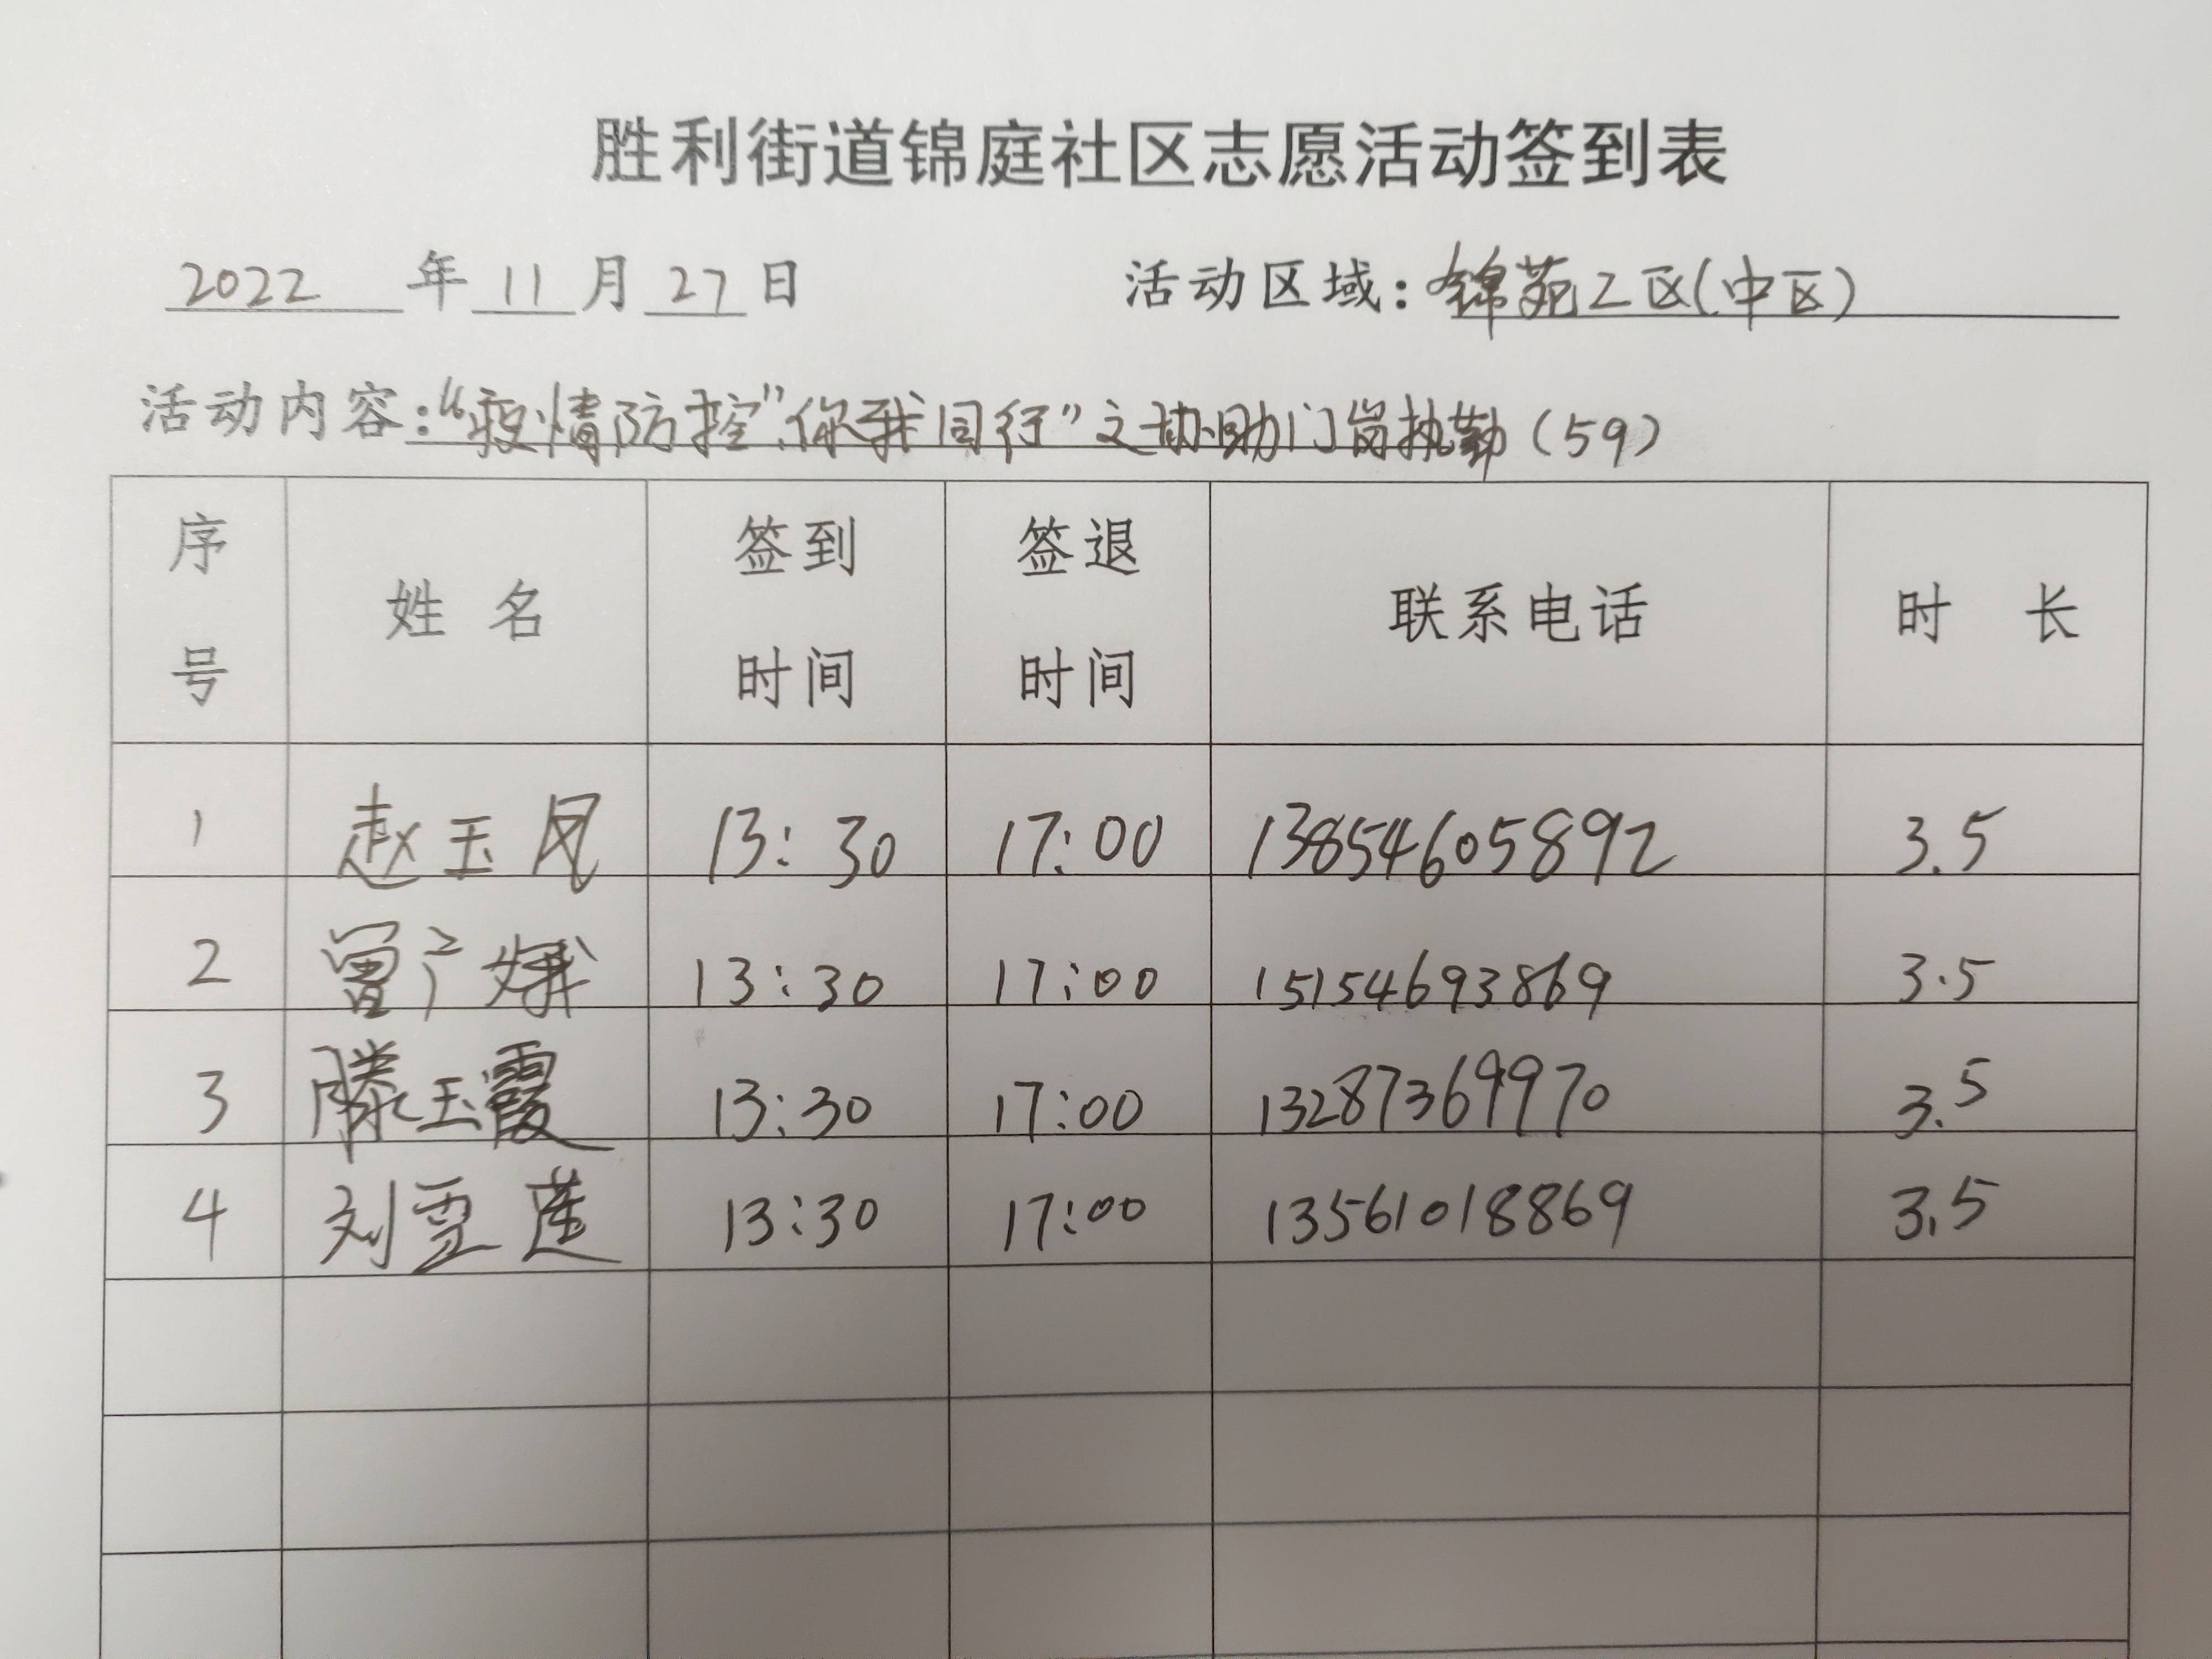 胜利街道锦庭社区志愿活动签到表
2022 年 11 月 27 日 活动区域：锦苑2区(中区)
活动内容："疫情防控"你我同行"之协助门岗执勤(59)
序号 姓名 签到时间 签退时间 联系电话 时长
1 赵玉凤 13:30 17:00 13854605892 3.5
2 曾广娥 13:30 17:00 15154693869 3.5
3 滕玉霞 13:30 17:00 13287369970 3.5
4 刘雪莲 13:30 17:00 13561018869 3.5